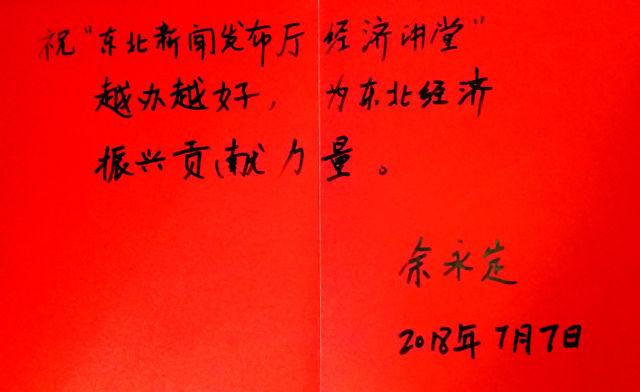 祝“东北新闻发布厅 经济讲堂”
越办越好，为东北经济
振兴贡献力量。
余永定
2018年7月7日